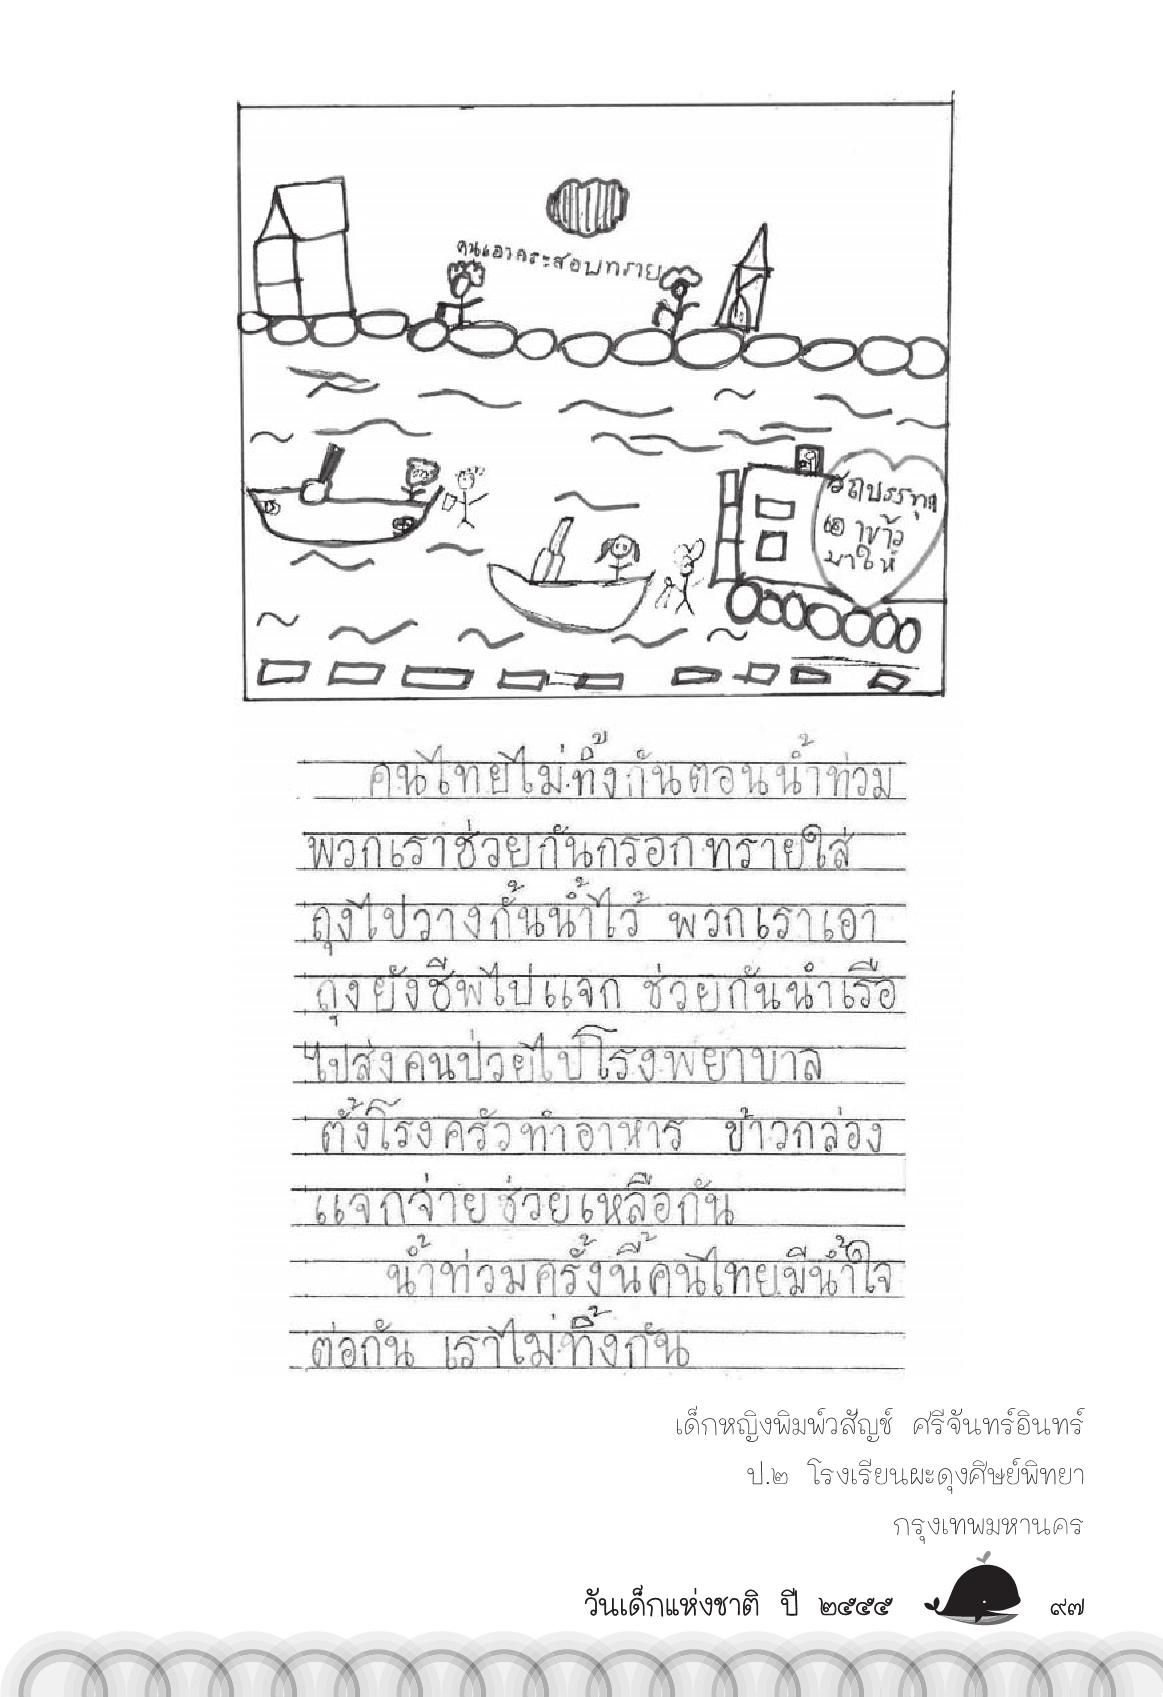 คนเอากระสอบทราย
รถบรรทุก
เอาข้าว
มาให้
คนไทยไม่ทิ้งกันตอนน้ำท่วม
พวกเราช่วยกันกรอกทรายใส่
ถุงไปวางกั้นน้ำไว้ พวกเราเอา
ถุงยังชีพไปแจก ช่วยกันนำเรือ
ไปส่งคนป่วยไปโรงพยาบาล
ตั้งโรงครัวทำอาหาร ข้าวกล่อง
แจกจ่ายช่วยเหลือกัน
น้ำท่วมครั้งนี้คนไทยมีน้ำใจ
ต่อกัน เราไม่ทิ้งกัน
เด็กหญิงพิมพ์วสัญช์ ศรีจันทร์อินทร์
ป.๒ โรงเรียนผะดุงศิษย์พิทยา
กรุงเทพมหานคร
วันเด็กแห่งชาติ ปี ๒๕๕๕
๙๗